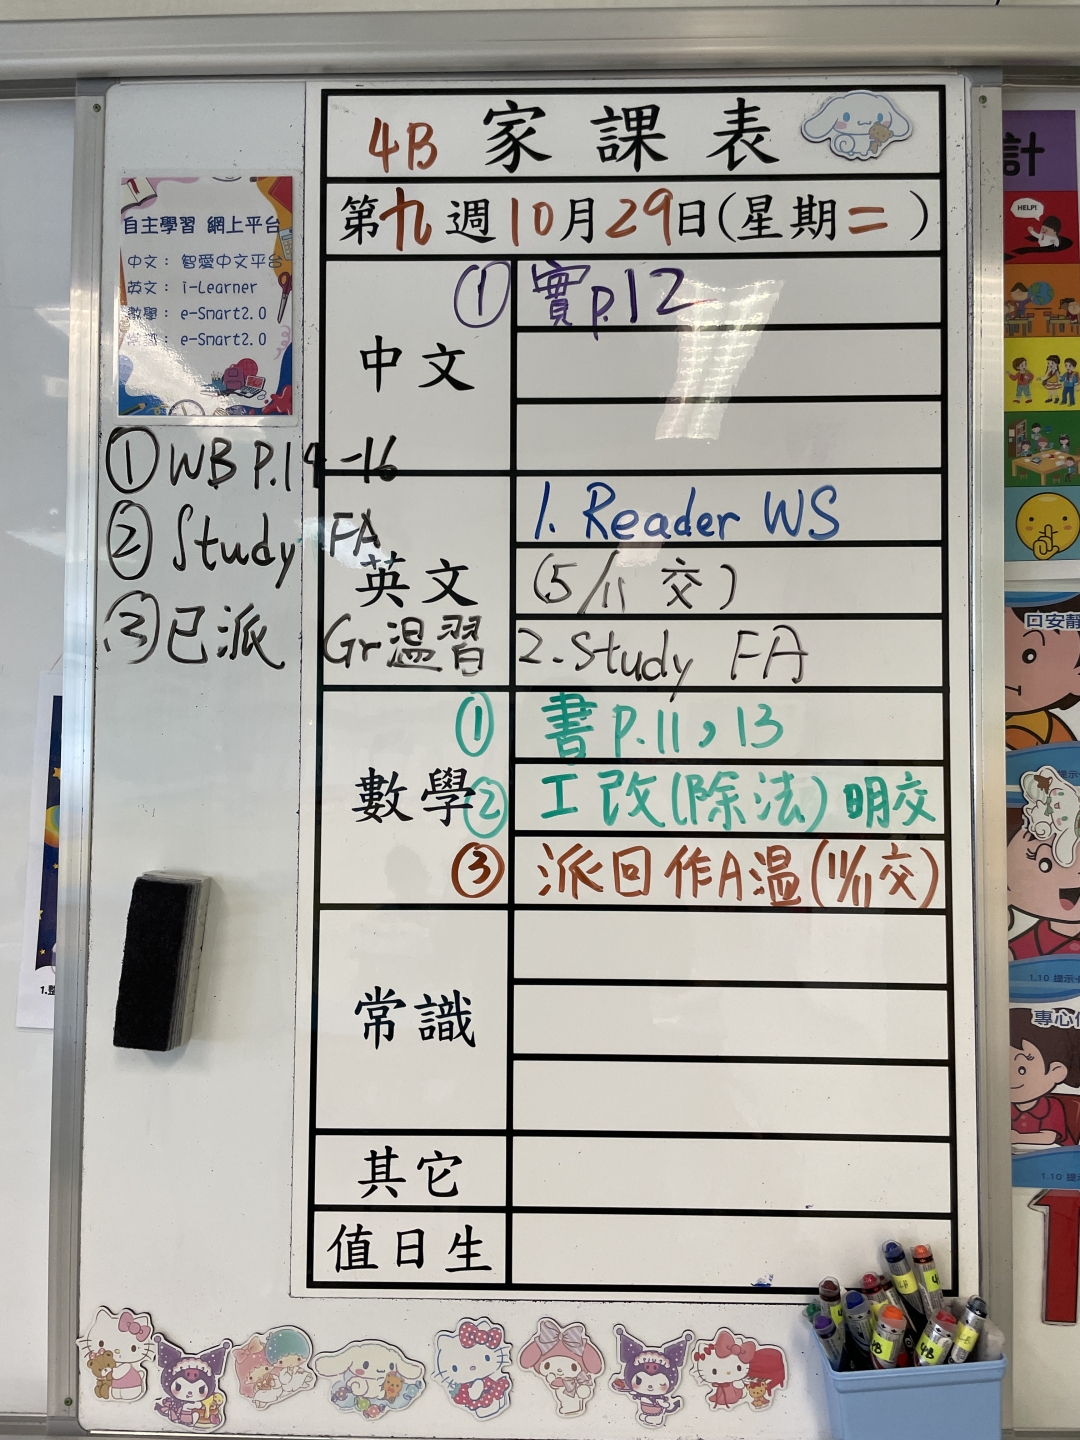 4B 家課表
第九週10月29日(星期二)
自主學習 網上平台
中文： 智愛中文平台
英文： i-Learner
數學： e-Smart2.0
e-Smart2.0
中文
① 實p.12
① WB P.14-16
② Study FA
③ 已派 Gr温習
英文
1. Reader WS
(5/11 交)
2. Study FA
數學
① 書p.11，13
② 工改(除法)明交
③ 派回作A温(11/11交)
常識
其它
值日生
計
HELP!
回安靜
1.10 提示卡
專心
1.10 提
1
1.整
4B